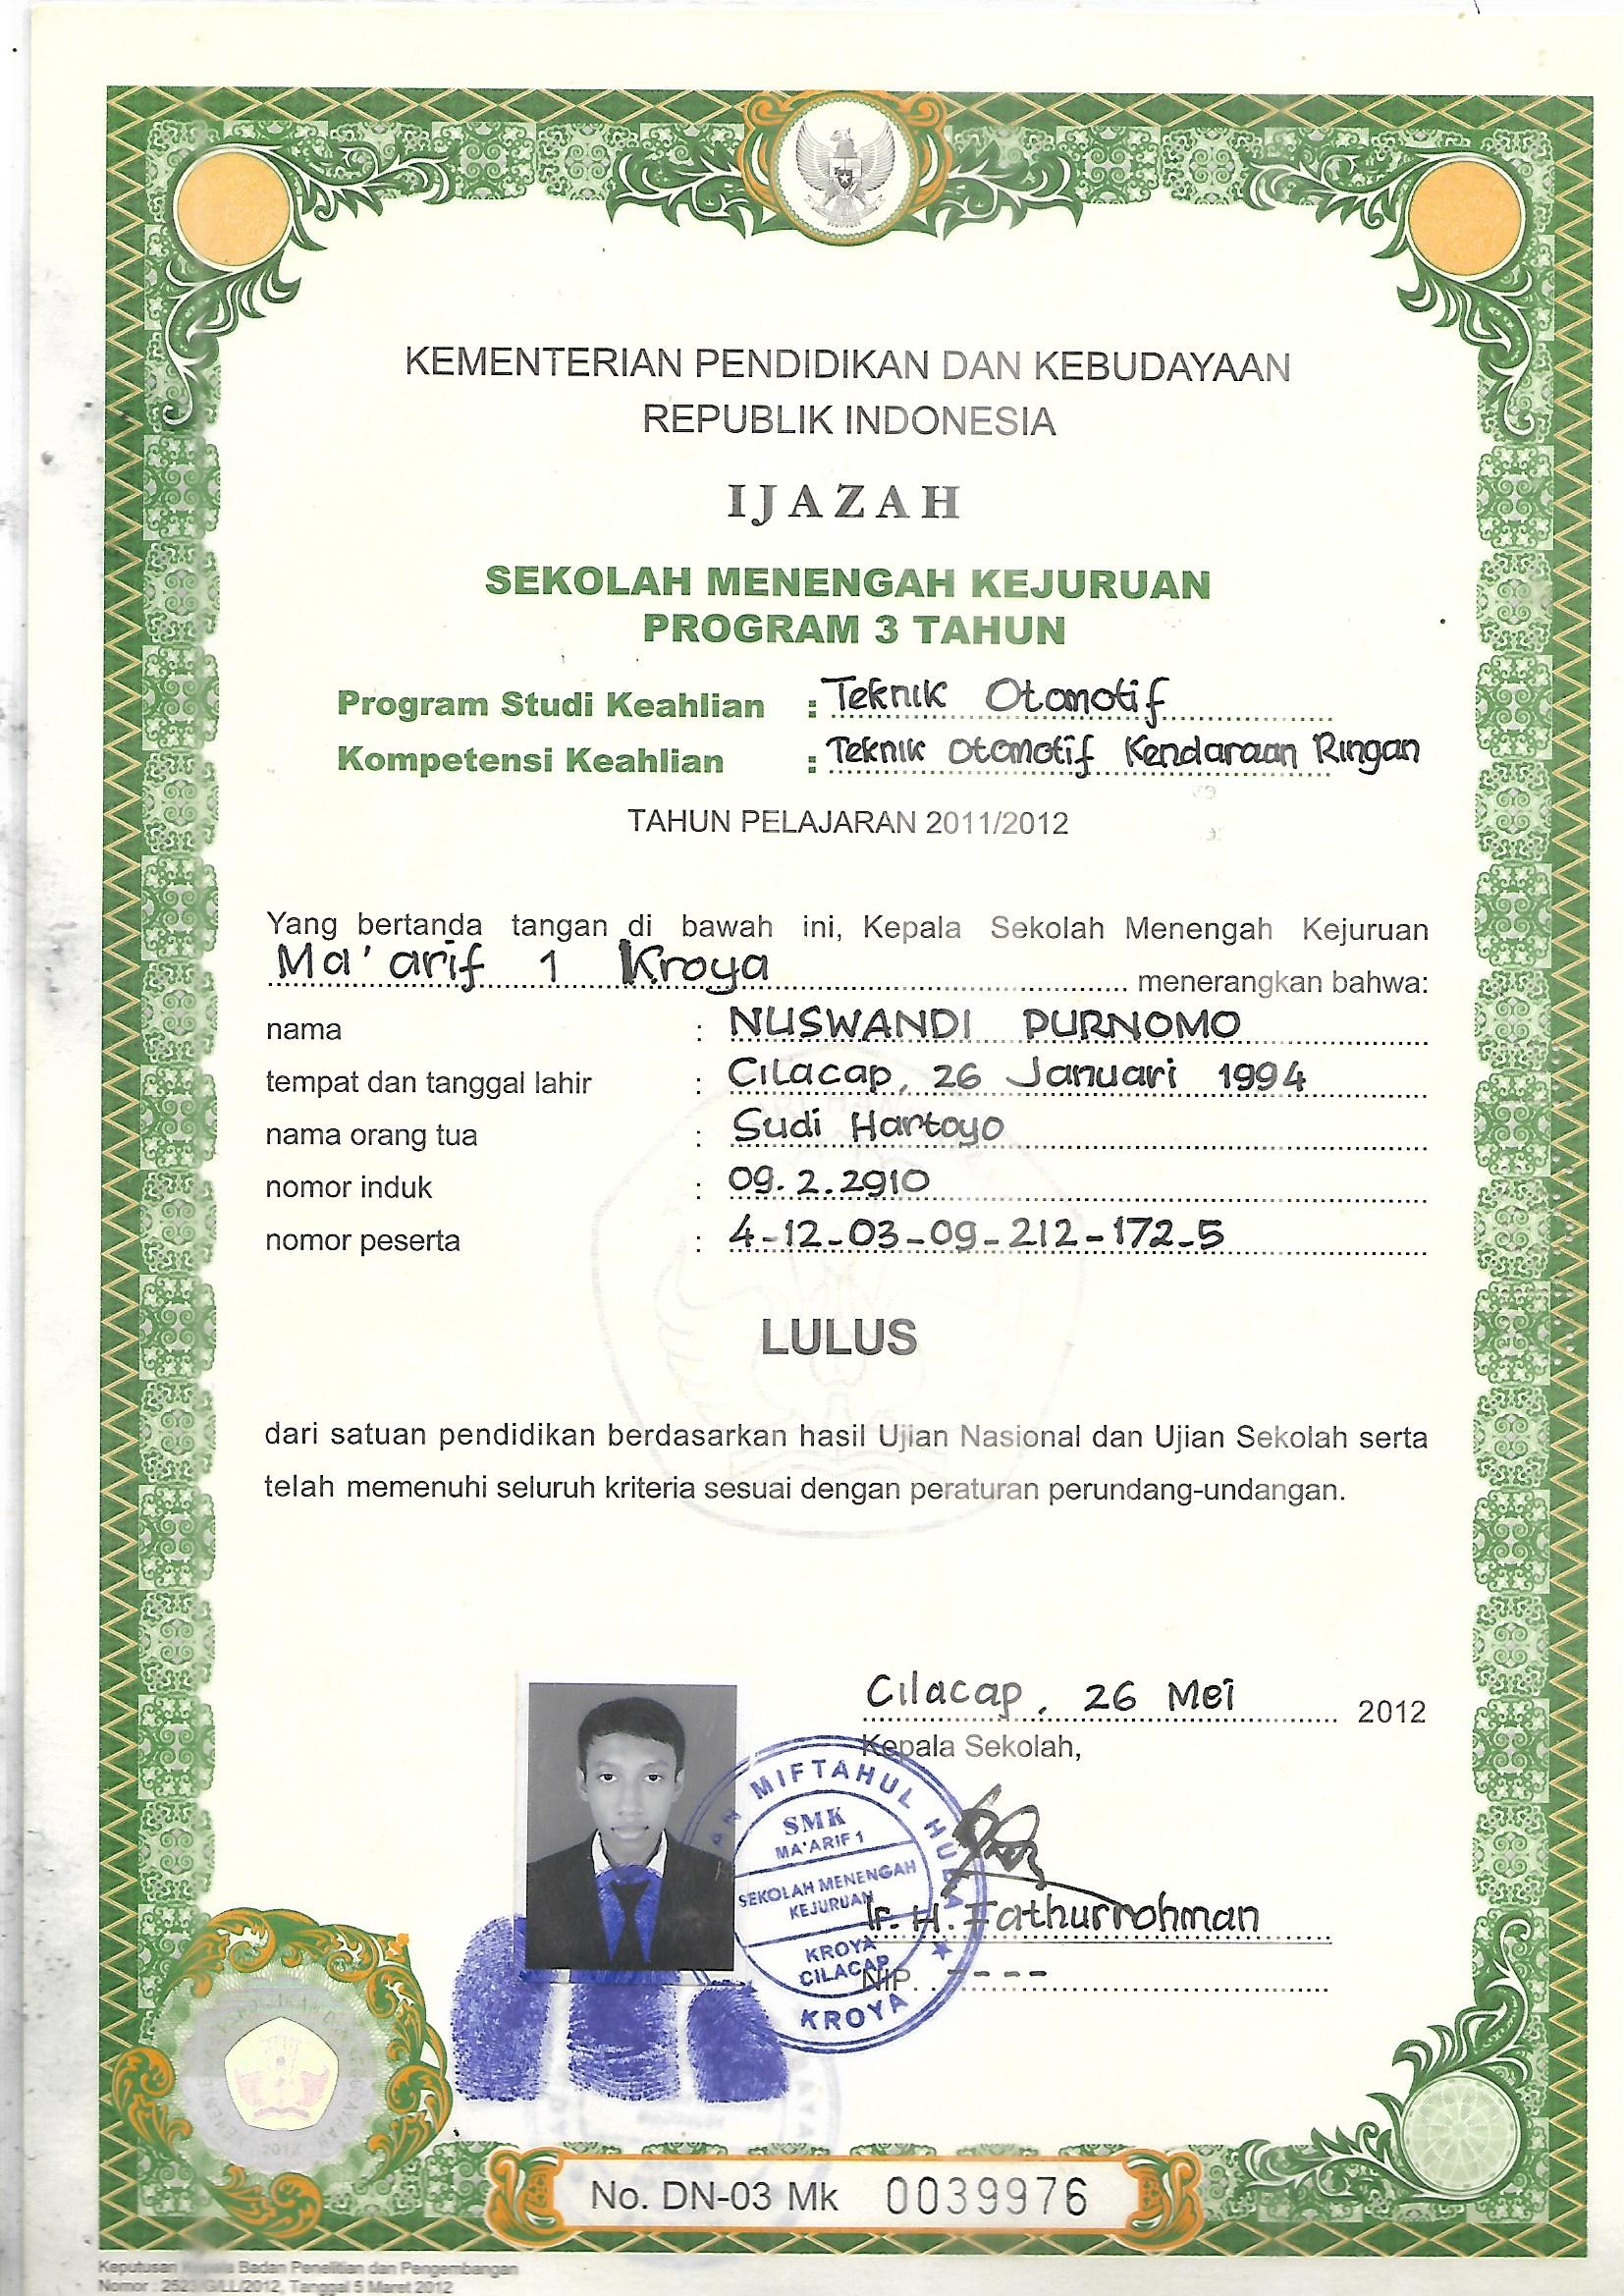 KEMENTERIAN PENDIDIKAN DAN KEBUDAYAAN
REPUBLIK INDONESIA
IJAZAH
SEKOLAH MENENGAH KEJURUAN
PROGRAM 3 TAHUN
Program Studi Keahlian : Teknik Otomotif
Kompetensi Keahlian : Teknik Otomotif Kendaraan Ringan
TAHUN PELAJARAN 2011/2012
Yang bertanda tangan di bawah ini, Kepala Sekolah Menengah Kejuruan
Ma'arif 1 Kroya menerangkan bahwa:
nama : NUSWANDI PURNOMO
tempat dan tanggal lahir : Cilacap, 26 Januari 1994
nama orang tua : Sudi Hartoyo
nomor induk : 09.2.2910
nomor peserta : 4-12-03-09-212-172-5
LULUS
dari satuan pendidikan berdasarkan hasil Ujian Nasional dan Ujian Sekolah serta
telah memenuhi seluruh kriteria sesuai dengan peraturan perundang-undangan.
Cilacap, 26 Mei 2012
Kepala Sekolah,
MIFTAHUL HUDA
SMK
MA'ARIF 1
SEKOLAH MENENGAH
KEJURUAN
KROYA
CILACAP
KROYA
Ir. H. Fathurrohman
NIP. ----
2012
No. DN-03 Mk 0039976
Keputusan Kepala Badan Penelitian dan Pengembangan
Nomor : 252 /G/LL/2012, Tanggal 5 Maret 2012